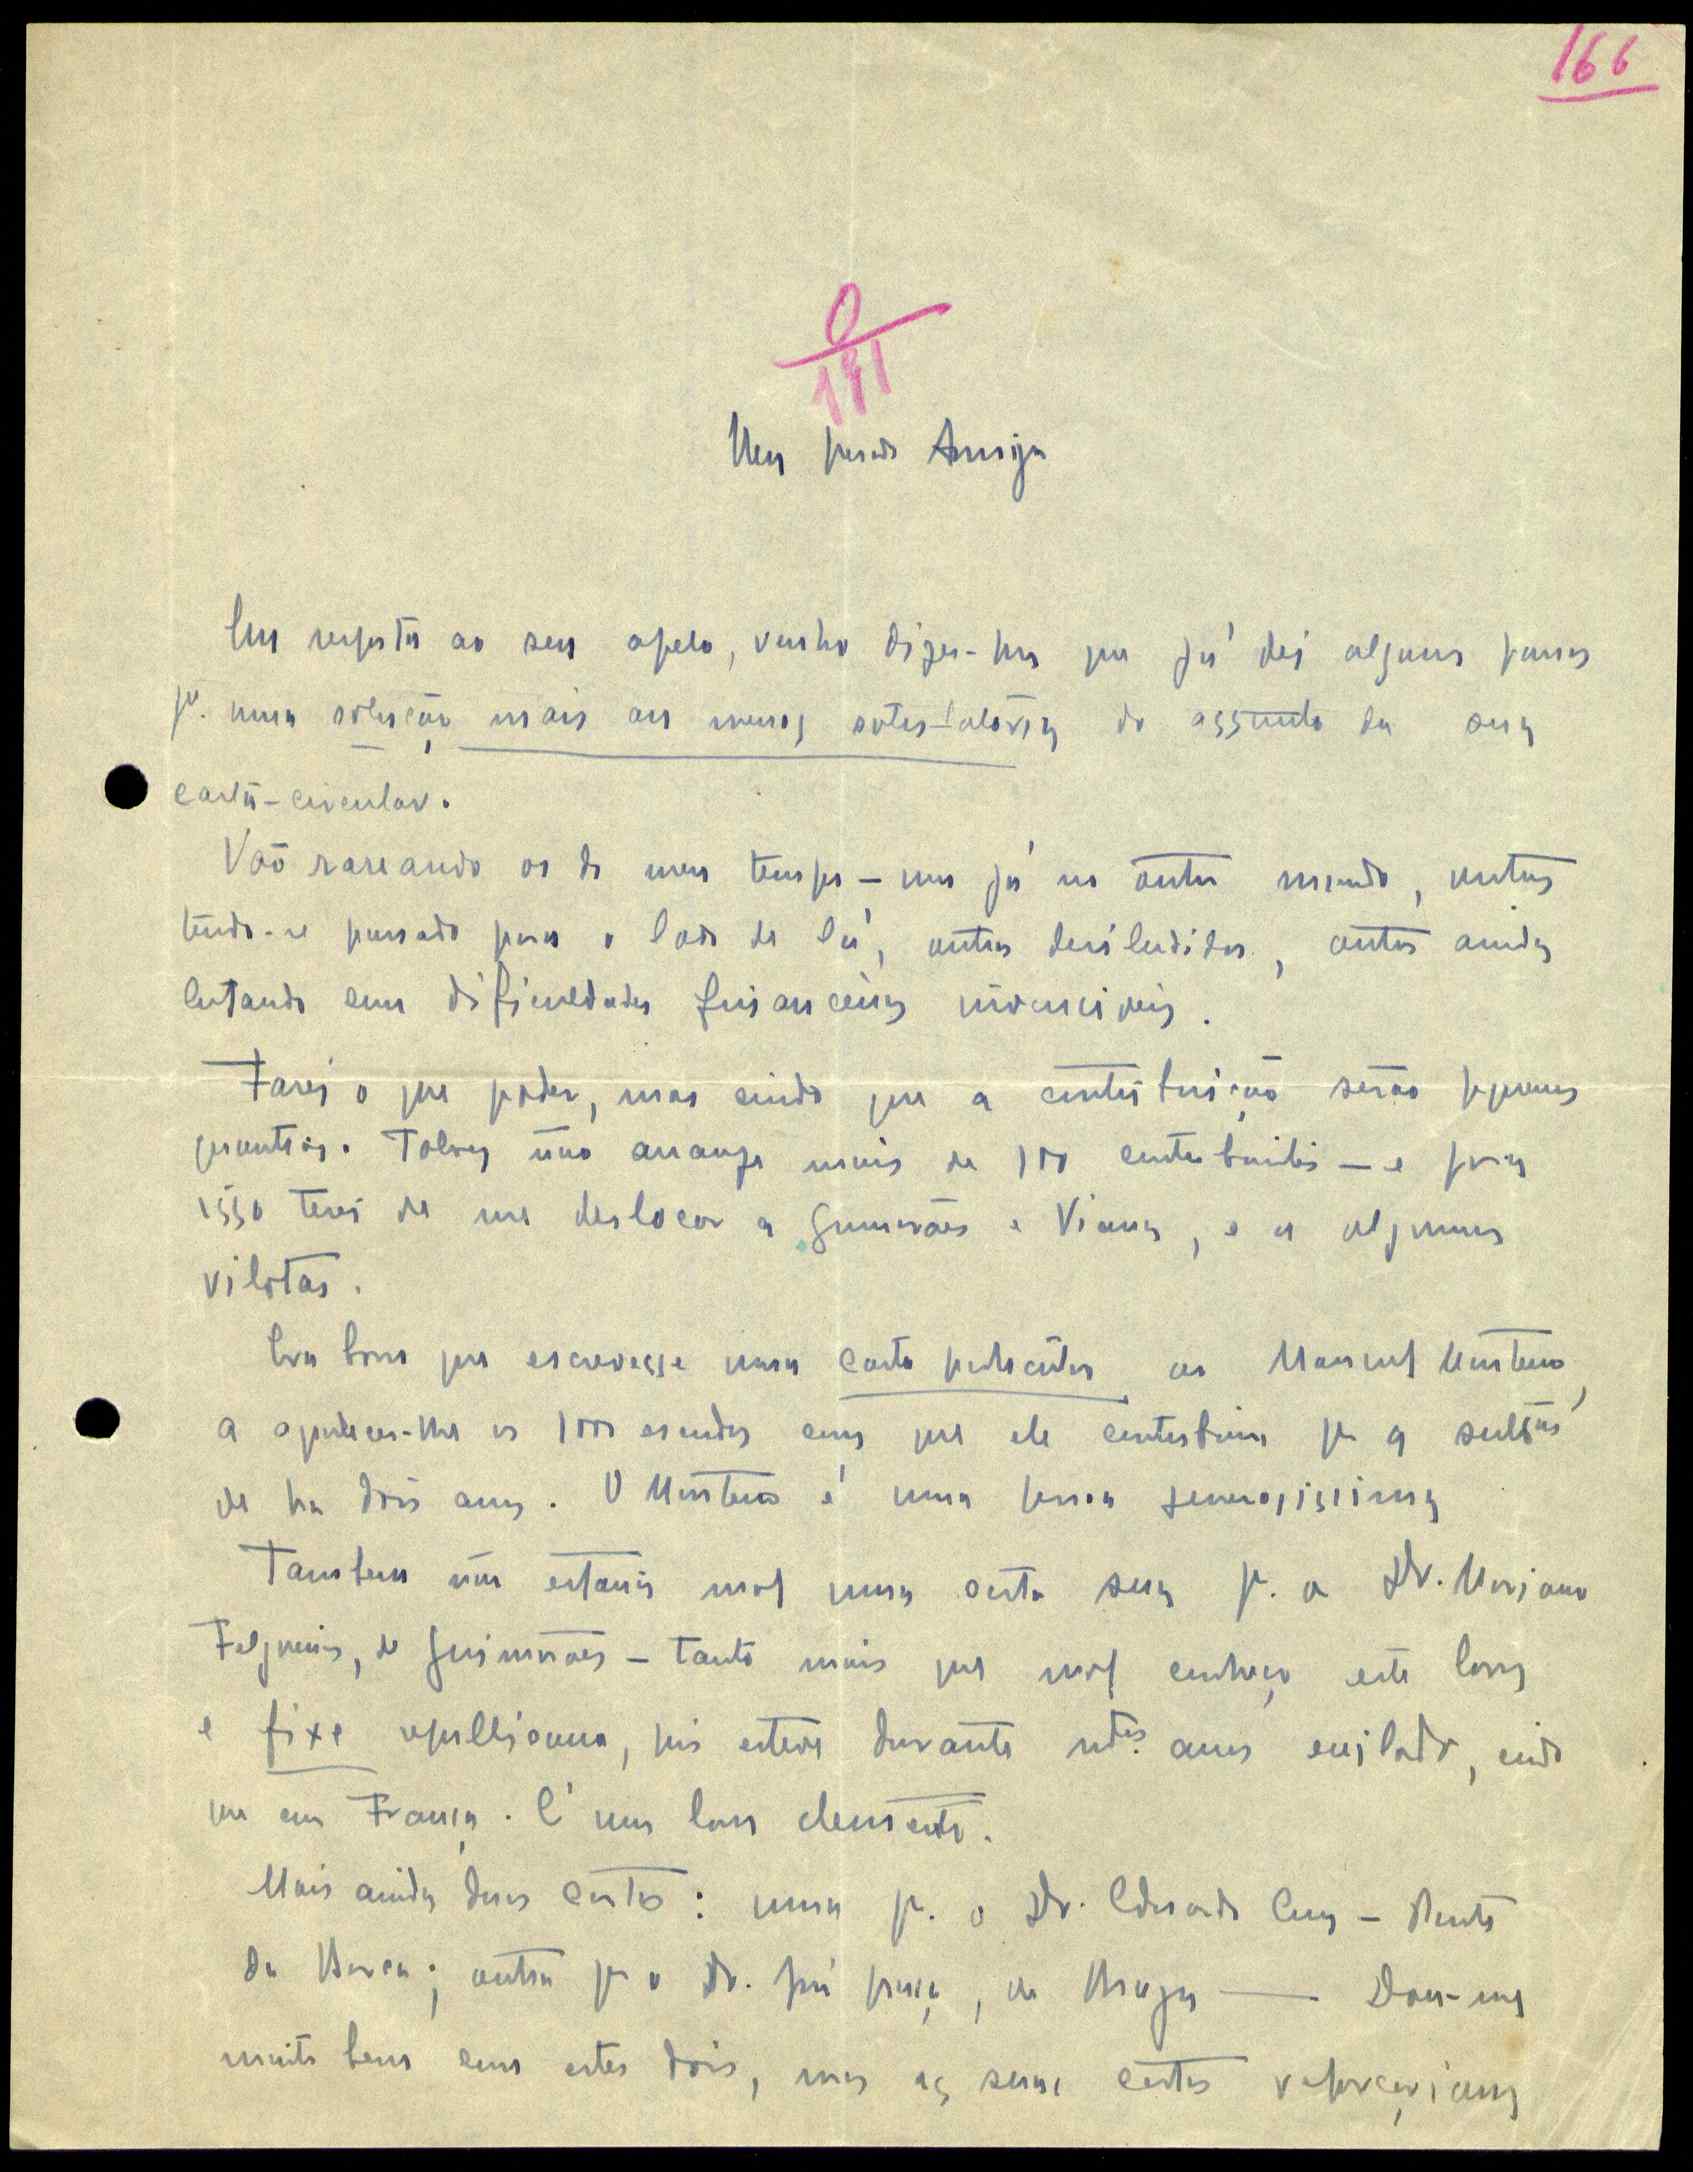 166
0
191
Meu prezado Amigo
Em resposta ao seu apelo, venho dizer-lhe que já dei alguns passos
p.ª uma solução mais ou menos satisfatória do assunto da sua
carta-circular.
Vão rareando os do meu tempo – uns já no outro mundo, outros
tendo-se passado para o lado de lá, outros desiludidos, outros ainda
lutando com dificuldades financeiras invenciveis.
Farei o que poder, mas creido que a contribuição serão pequenas
quantias. Talvez não arranje mais de 100 contribuintes – e para
isso terei de me deslocar a Guimarães e Viana, e a algumas
vilotas.
Era bom que escrevesse uma carta particular ao Manuel Monteiro,
a agradecer-lhe os 1000 escudos com que ele contribuiu p.ª a
de ha dois anos. O Monteiro é uma pessoa generosissima
Tambem não estaria mal uma carta sua p.ª o Dr. Mariano
Felgueiras, de Guimarães – tanto mais que mal conheço este bom
e fixe republicano, pois esteve durante m.tos anos exilado, creido
que em França. É um bom elemento.
Mais ainda duas cartas: uma p.ª o Dr. Eduardo Cruz – Ponte
da Barca; outra p.ª o Dr. , de Braga —— Dou-me
muito bem com estes dois, mas as suas cartas reforçariam